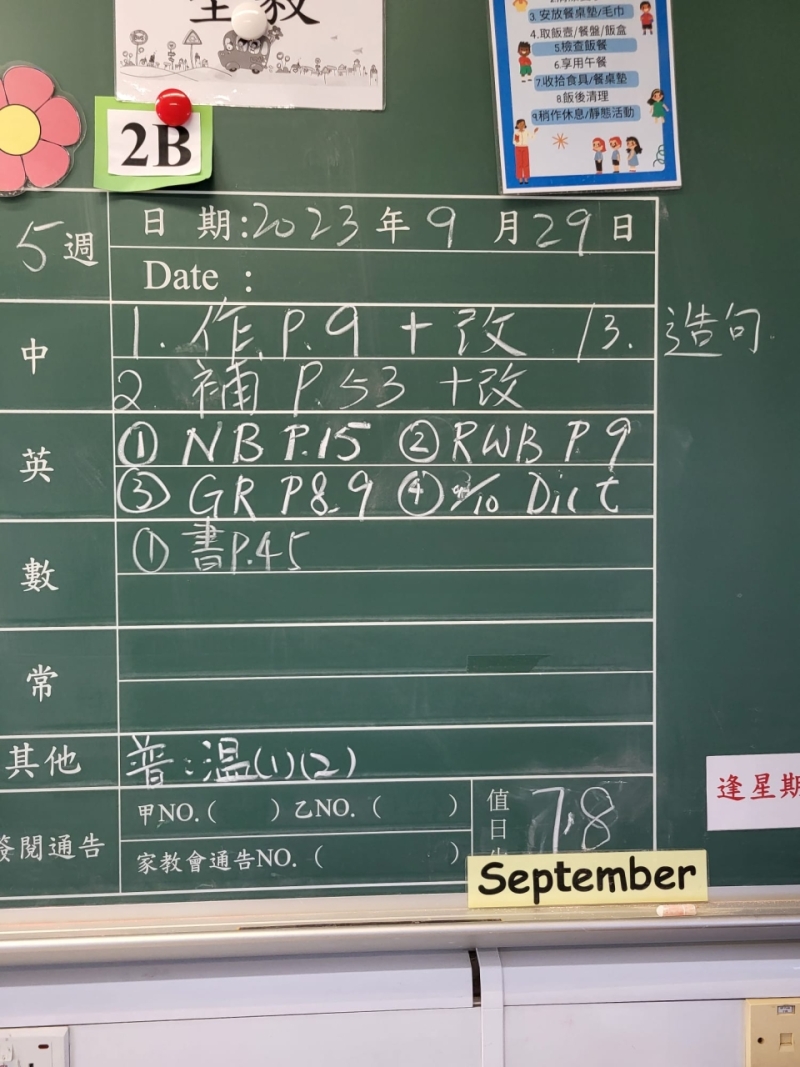 聖教
3.安放餐桌墊/毛巾
4.取飯壺/餐盤/飯盒
5.檢查飯餐
6.享用午餐
7.收拾食具/餐桌墊
8.飯後清理
9.稍作休息/靜態活動
2B
5週
日期:2023年9月29日
Date :
中
1. 作 P.9 + 改 /3. 造句
2. 補 P.53 +改
英
① NB P.15 ② RWB P 9
③ GR P8-9 ④ /10 Dict
數
① 書P.45
常
其他
普:溫(1)(2)
簽閱通告
甲NO.( ) 乙NO. ( )
家教會通告NO. ( )
值日
7,8
逢星期
September